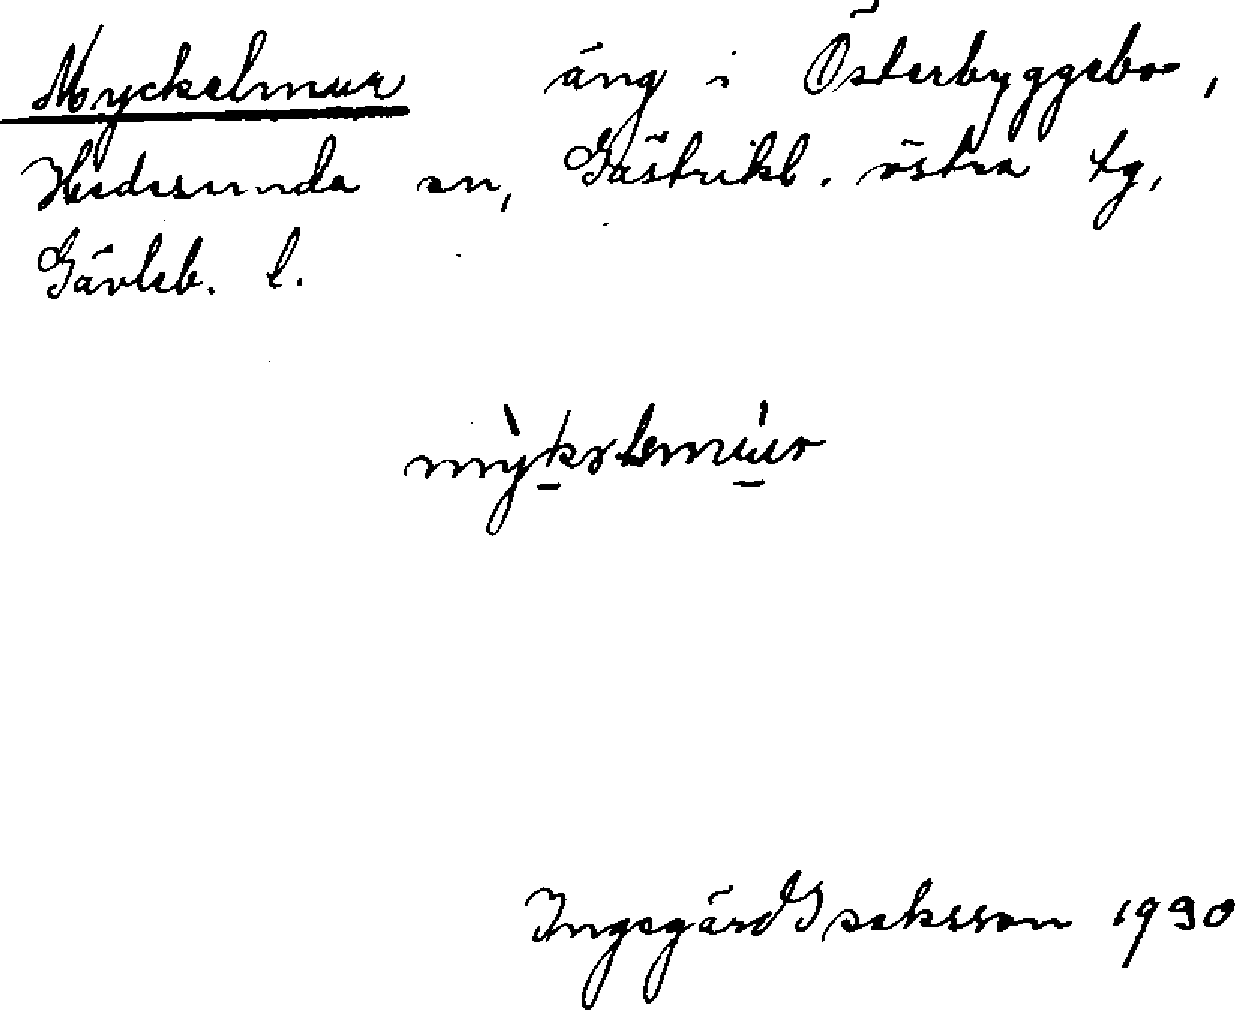 Myckelmur äng i Österbyggebo,
Hedesunda sn, Gästrikl. östra tg,
Gävleb. l.
Ingegärd Isaksson 1930